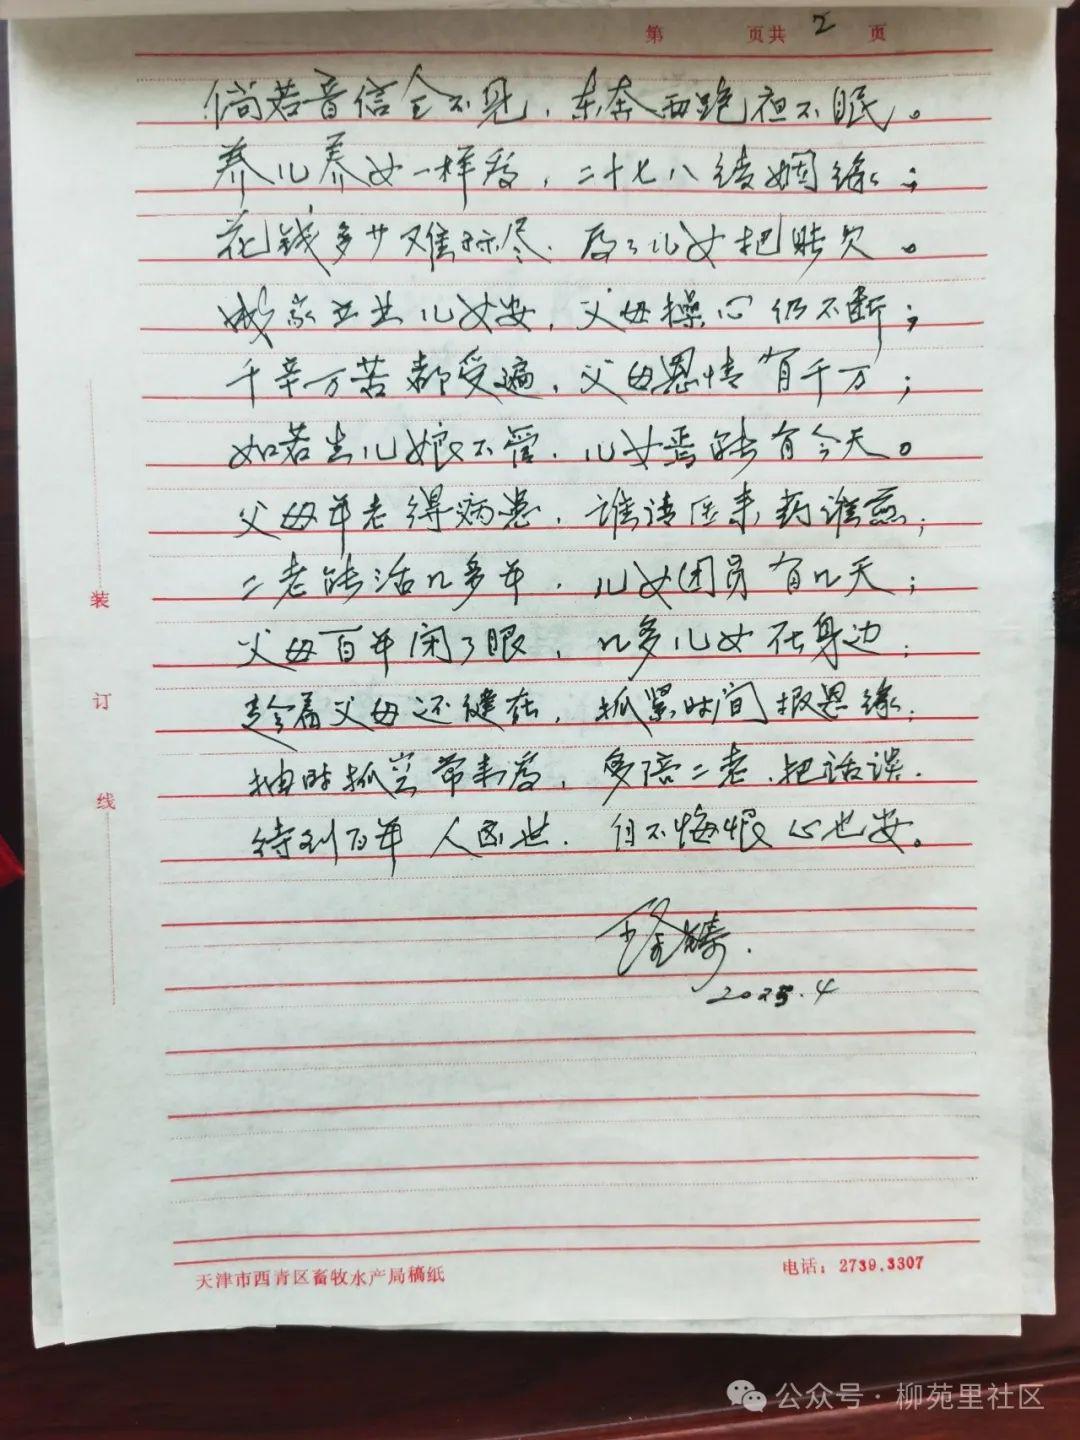 第 页共 2 页
倘若音信全不见，东奔西跑夜不眠。
养儿养女一样爱，二十七八结姻缘；
花钱多少难标尽，为了儿女把账欠。
成家立业儿女安，父母操心仍不断；
千辛万苦都受遍，父母恩情有千万；
如若生儿娘不管，儿女焉能有今天。
父母年老得病患，谁请医来药谁煎；
二老能活几多年，儿女团员有几天；
父母百年闭了眼，几多儿女在身边；
趁着父母还健在，抓紧时间报恩缘；
抽时抓空常来看，多陪二老把话谈．
待到百年人去世．自不悔恨心也安。
2025.4
装
订
线
天津市西青区畜牧水产局稿纸
电话：2739.3307
公众号·柳苑里社区